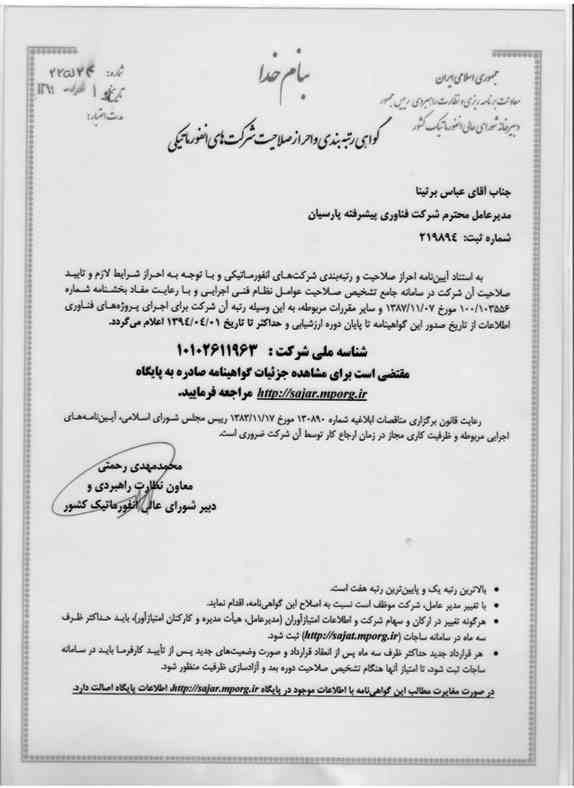 بنام خدا
جمهوری اسلامی ایران
معاونت برنامه ریزی و نظارت راهبردی رییس جمهور
دبیرخانه شورای عالی انفورماتیک کشور
شماره:
تاریخ:
مدت اعتبار:
گواهی رتبه بندی و احراز صلاحیت شرکت های انفورماتیکی
جناب آقای عباس برتینا
مدیرعامل محترم شرکت فناوری پیشرفته پارسیان
شماره ثبت: ۲۱۹۸۹۴
به استناد آیین‌نامه احراز صلاحیت و رتبه‌بندی شرکت‌های انفورماتیکی و با توجه به احراز شرایط لازم و تایید
صلاحیت آن شرکت در سامانه جامع تشخیص صلاحیت عوامل نظام فنی اجرایی و با رعایت مفاد بخشنامه شماره
۱۰۰/۱۰۳۵۵۶ مورخ ۱۳۸۷/۱۱/۰۷ و سایر مقررات مربوطه، به این وسیله رتبه آن شرکت برای اجرای پروژه‌های فناوری
اطلاعات از تاریخ صدور این گواهینامه تا پایان دوره ارزشیابی و حداکثر تا تاریخ ۱۳۹۴/۰۴/۰۱ اعلام می‌گردد.
شناسه ملی شرکت : ۱۰۱۰۲۶۱۱۹۶۳
مقتضی است برای مشاهده جزئیات گواهینامه صادره به پایگاه
http://sajar.mporg.ir مراجعه فرمایید.
رعایت قانون برگزاری مناقصات ابلاغیه شماره ۱۳۰۸۹۰ مورخ ۱۳۸۳/۱۱/۱۷ رییس مجلس شورای اسلامی، آیین‌نامه‌های
اجرایی مربوطه و ظرفیت کاری مجاز در زمان ارجاع کار توسط آن شرکت ضروری است.
محمدمهدی رحمتی
معاون نظارت راهبردی و
دبیر شورای عالی انفورماتیک کشور
• بالاترین رتبه یک و پایین‌ترین رتبه هفت است.
• با تغییر مدیر عامل، شرکت موظف است نسبت به اصلاح این گواهی‌نامه، اقدام نماید.
• هرگونه تغییر در ارکان و سهام شرکت و اطلاعات امتیازآوران (مدیرعامل، هیأت مدیره و کارکنان امتیازآور)، باید حداکثر ظرف
سه ماه در سامانه ساجات (http://sajat.mporg.ir) ثبت شود.
• هر قرارداد جدید حداکثر ظرف سه ماه پس از انعقاد قرارداد و صورت وضعیت‌های جدید پس از تأیید کارفرما باید در سامانه
ساجات ثبت شود، تا امتیاز آنها هنگام تشخیص صلاحیت دوره بعد و آزادسازی ظرفیت منظور شود.
در صورت مغایرت مطالب این گواهی‌نامه با اطلاعات موجود در پایگاه http://sajar.mporg.ir، اطلاعات پایگاه اصالت دارد.